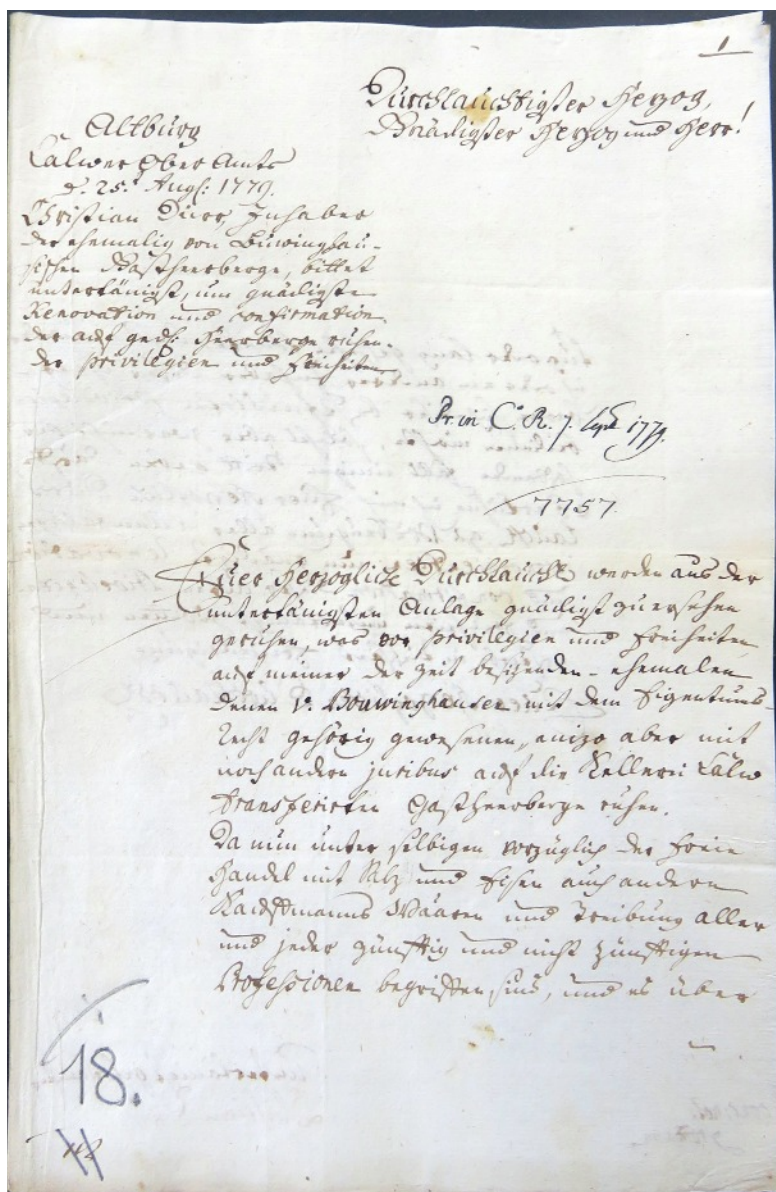 1
Durchlauchtigster Herzog,
Gnädigster Herzog und Herr!
Altburg
Calwer Ober Amts
d. 25.t Aug: 1779.
Christian Dürr, Inhaber
der ehemalig von Buwinghau-
sischen Gastheerberge, bittet
unterthänigst, um gnädigste
Renovation und confirmation
der auf gedh: Heerberge ruhen-
der privilegien und Freiheiten
Pr. in C. R. 7. Sept 1779.
7757.
Euer Herzogliche Durchlaucht werden aus der
unterthänigsten Anlage gnädigst zu ersehen
geruhen, was vor privilegien und Freiheiten
auf meiner der Zeit besitzenden - ehemalen
denen v. Bouwinghausen mit dem Eigentums-
Recht gehörig gewesenen, anizo aber mit
noch andern juribus auf die Kellerei Calw
transferirten Gastheerberge ruhen.
Da nun unter selbigen vorzüglich der freie
Handel mit Salz und Eisen auch andern
Kauffmanns Waaren und Treibung aller
und jeder zünfftig und nicht zünfftigen
Professionen begriffen sind, und es über
18.